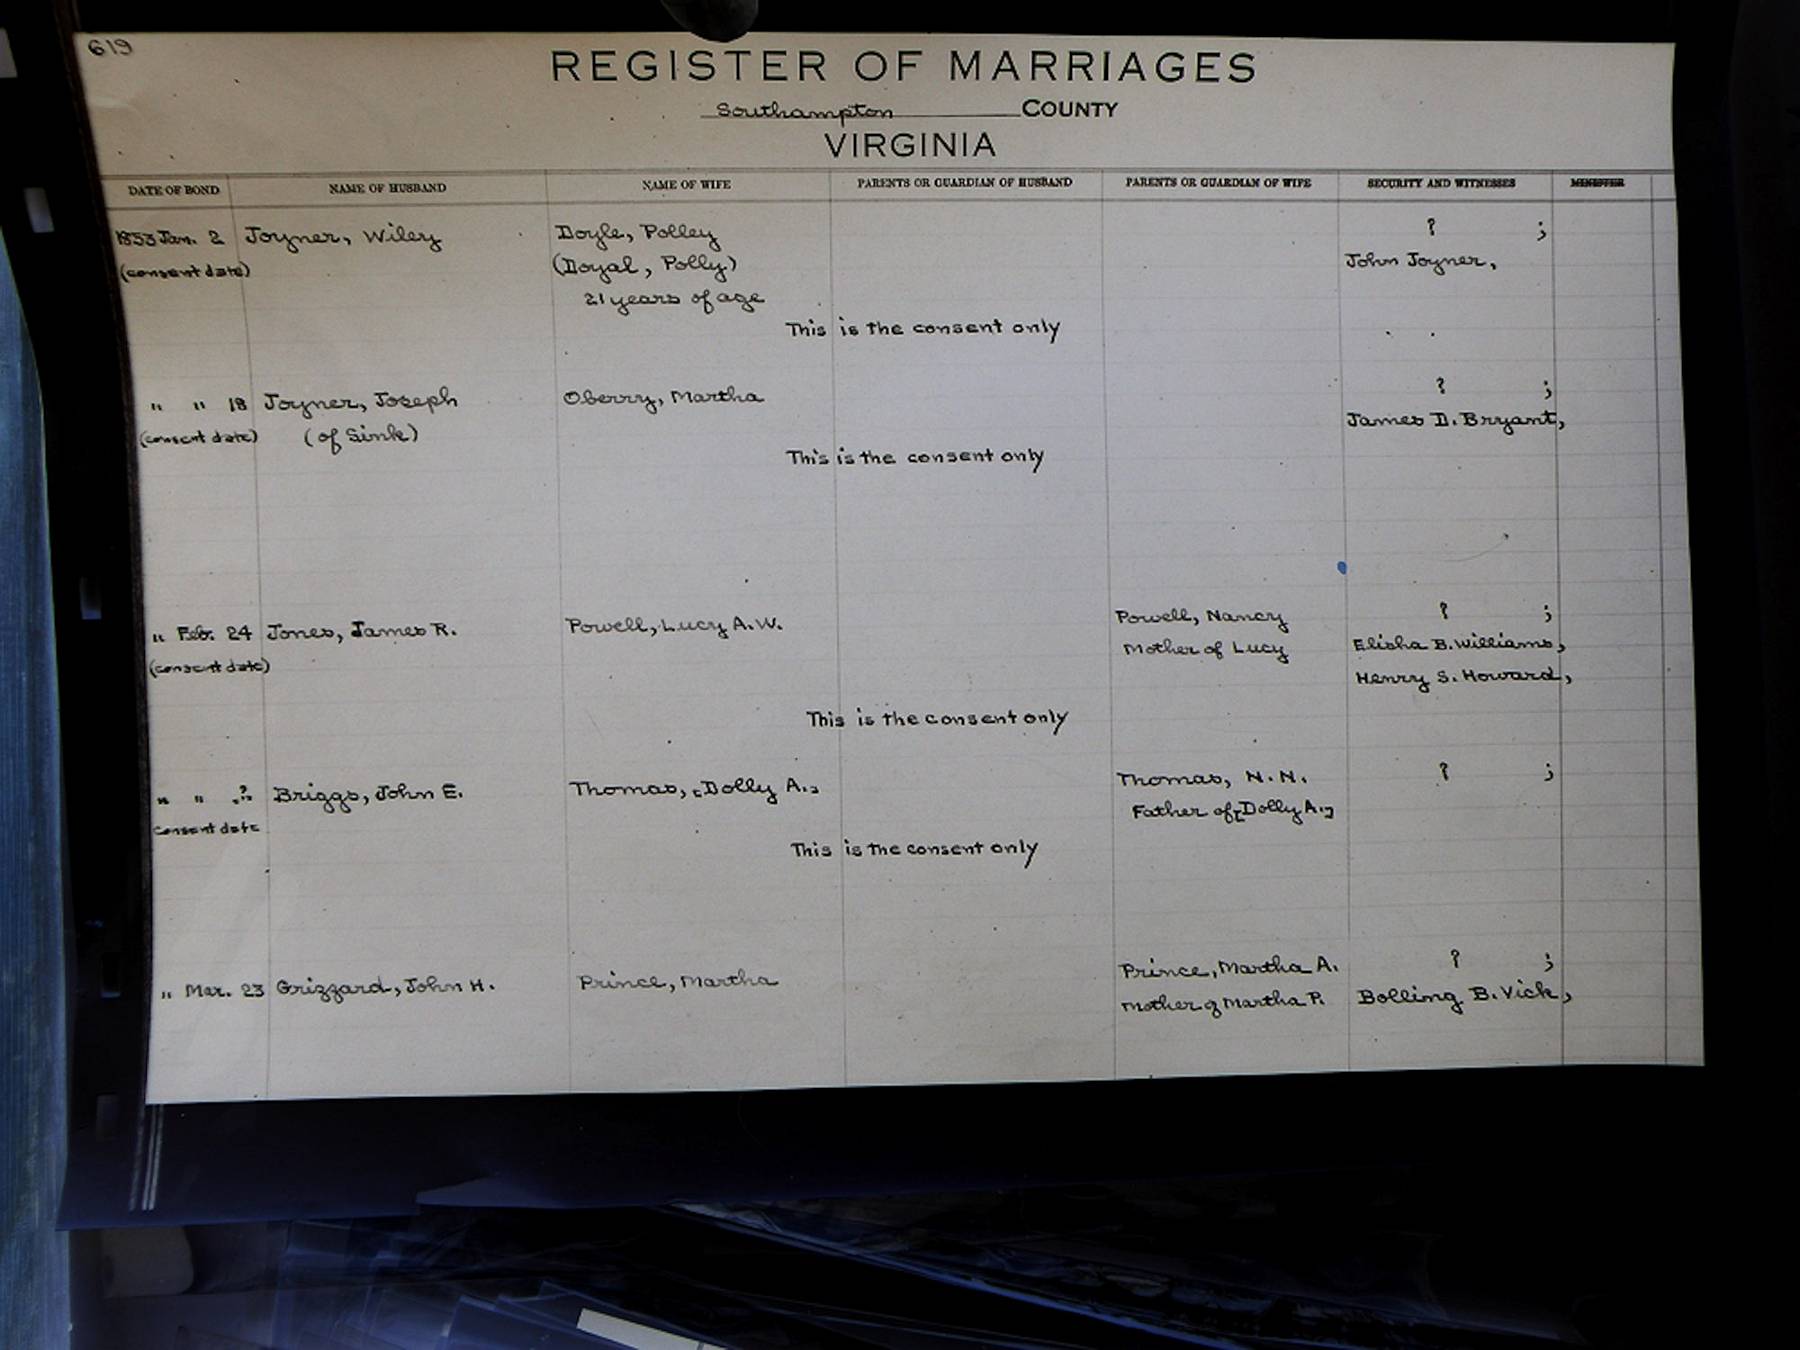 619
REGISTER OF MARRIAGES
Southampton COUNTY
VIRGINIA
DATE OF BOND NAME OF HUSBAND NAME OF WIFE PARENTS OR GUARDIAN OF HUSBAND PARENTS OR GUARDIAN OF WIFE SECURITY AND WITNESSES MINISTER
1853 Jan. 2 Joyner, Wiley Doyle, Polley ? ;
(consent date) (Doyal, Polly) John Joyner,
21 years of age
This is the consent only
" " 18 Joyner, Joseph Oberry, Martha ? ;
(consent date) (of Sink) James D. Bryant,
This is the consent only
" Feb. 24 Jones, James R. Powell, Lucy A.W. Powell, Nancy ? ;
(consent date) Mother of Lucy Elisha B. Williams,
Henry S. Howard,
This is the consent only
" " ? Briggs, John E. Thomas, [Dolly A.] Thomas, N.N. ? ;
consent date Father of [Dolly A.]
This is the consent only
" Mar. 23 Grizzard, John H. Prince, Martha Prince, Martha A. ? ;
Mother of Martha P. Bolling B. Vick,